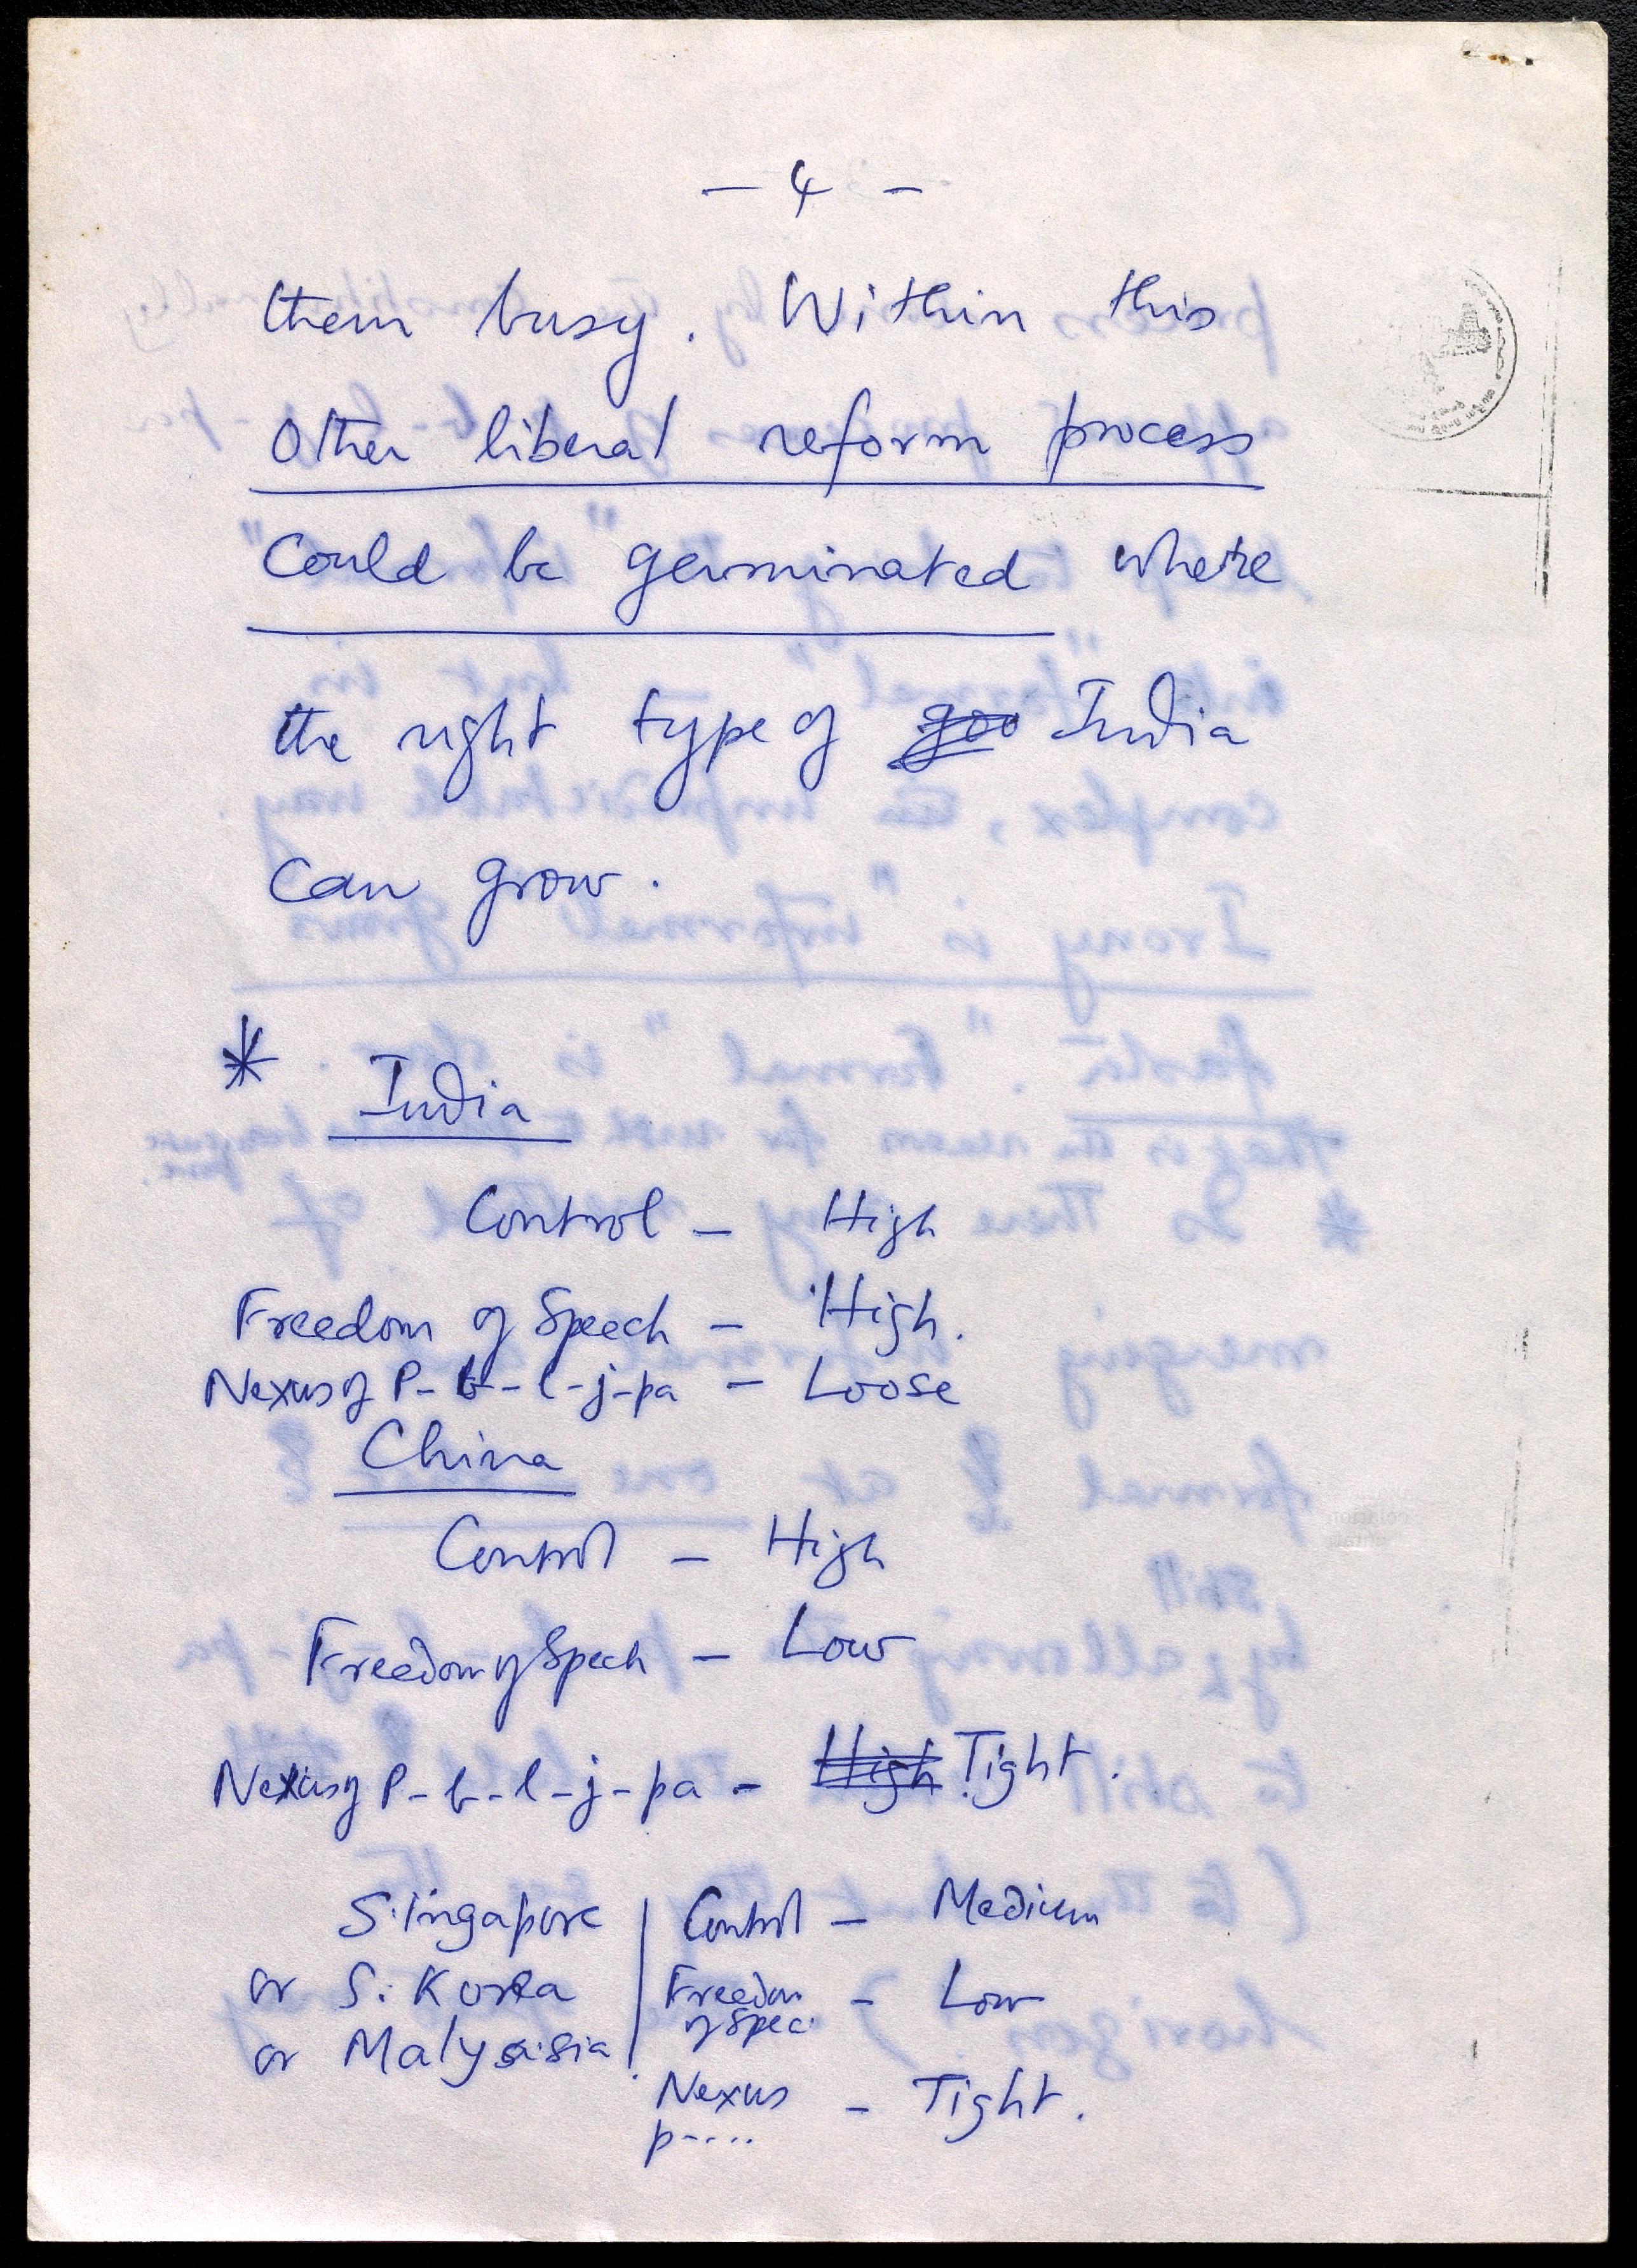 - 4 -
them busy. Within this
other liberal reform process
"Could be germinated" where
the right type of goo India
can grow.
* India
Control - High
Freedom of Speech - High.
Nexus of P-b-l-j-pa - Loose
China
Control - High
Freedom of Speech - Low
Nexus of P-b-l-j-pa - High Tight.
Singapore | Control - Medium
or S. Korea | Freedom of Spec. - Low
or Malysaisia
Nexus p---- - Tight.